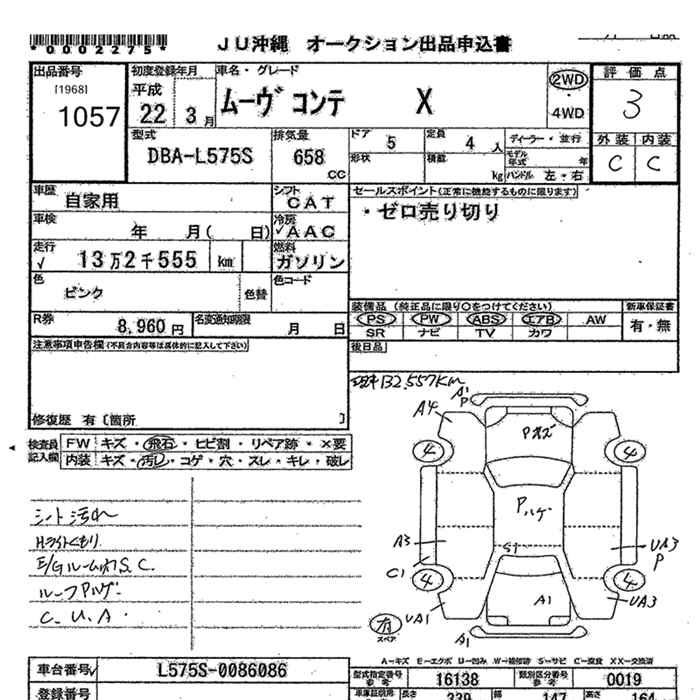 *0002275*
JU沖縄 オークション出品申込書
出品番号 初度登録年月 車名・グレード 2WD 評価点
[1968] 平成 ムーヴコンテ X ・ 3
1057 22 3月 4WD
型式 排気量 ドア 5 定員 4人 ディーラー・並行 外装 内装
DBA-L575S 658cc 形状 積載 kg モデル年式 年 C C
ハンドル 左・右
車歴 自家用 シフト CAT セールスポイント(正常に機能するものに限ります)
・ゼロ売り切り
車検 年 月( 日) 冷房 ✓AAC
走行 √ 13万2千555 km 燃料 ガソリン
色 ピンク 色替 色コード
装備品(純正品に限り○をつけてください) 新車保証書
R券 8,960円 名変通知期限 月 日 PS PW ABS エアB AW 有・無
SR ナビ TV カワ
注意事項申告欄(不具合内容等は具体的に記入して下さい) 後日品
132,557Km
修復歴 有〔箇所 〕
検査員記入欄 FW キズ・飛石・ヒビ割・リペア跡・×要
内装 キズ・汚レ・コゲ・穴・スレ・キレ・破レ
シート汚れ
Hライトくもり
E/Gルーム内S.C.
ルーフPハゲ
C.U.A
A1
P
A4
Pボケ
4
4
Pハゲ
A3
S1
UA3
P
C1
4
4
A1
UA1
UA3
有
スペア
A1
A－キズ E－エクボ U－凹み W－補修跡 S－サビ C－腐食 XX－交換済
車台番号 L575S-0086086 型式指定番号 参考 16138 類別区分番号 参考 0019
登録番号 車庫証明用 参考 長さ 339 幅 147 高さ 164